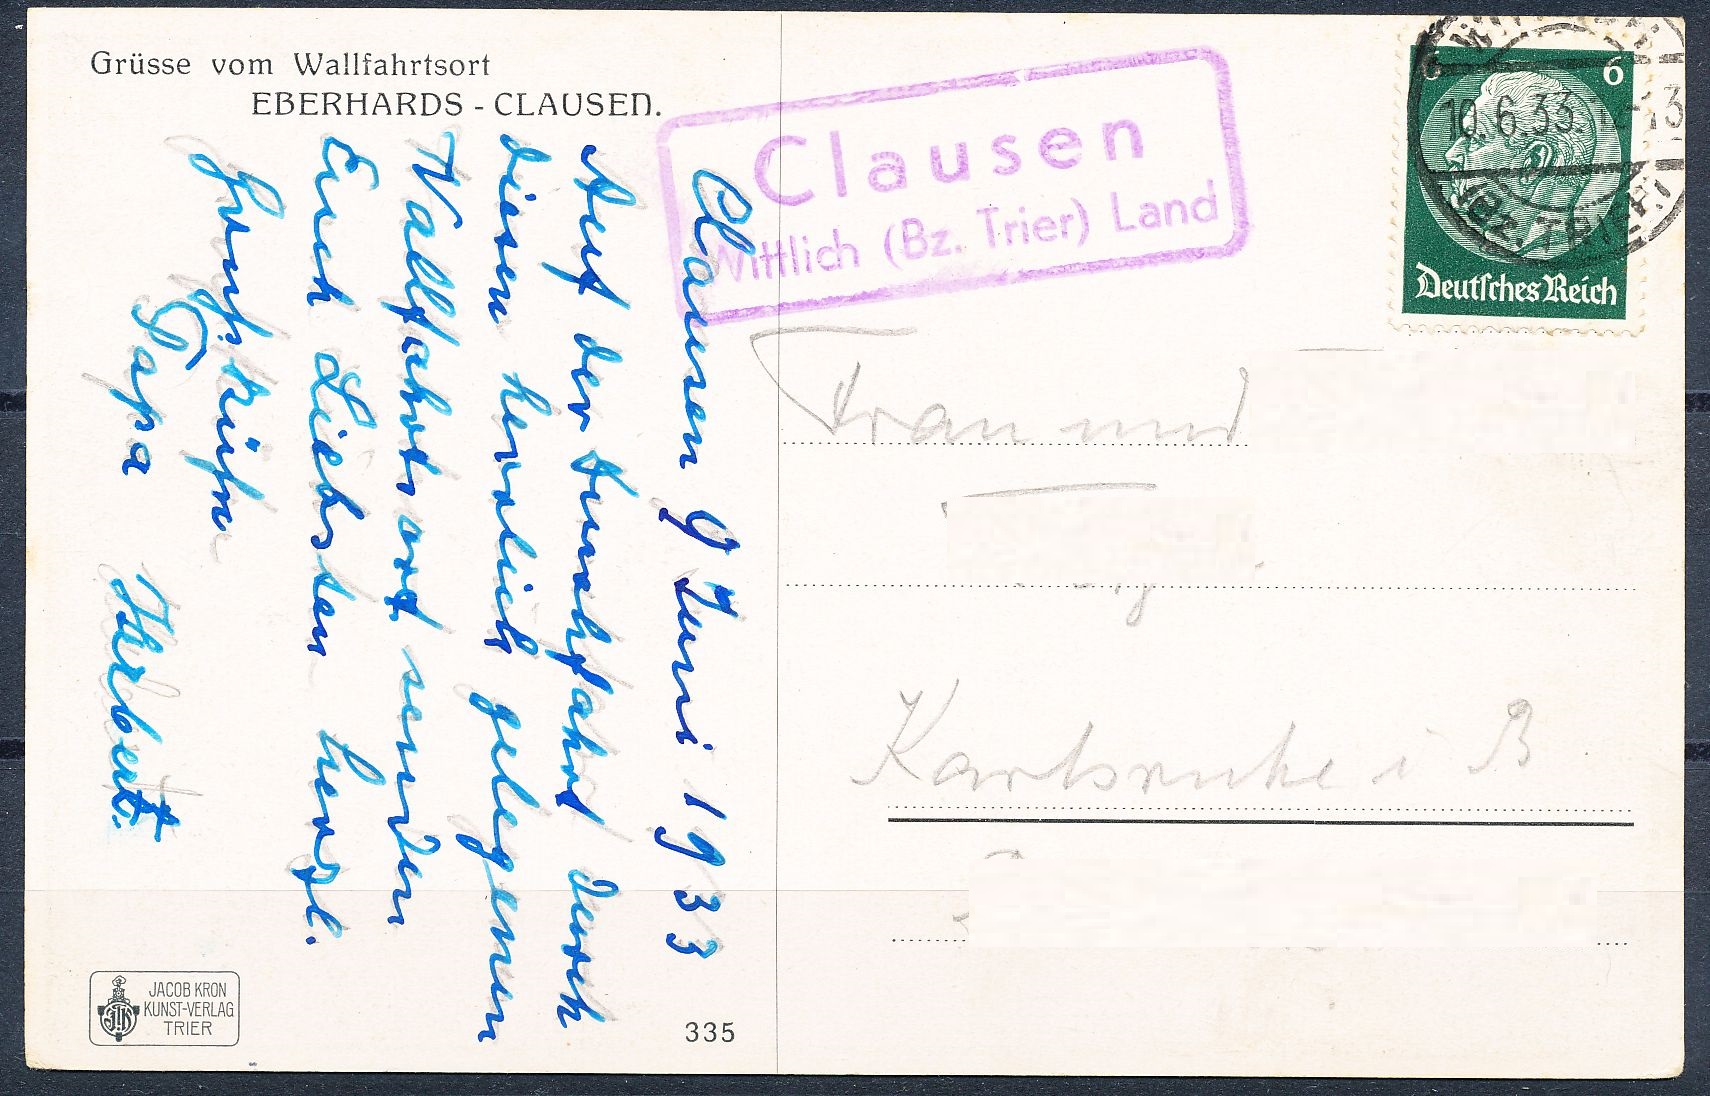 Grüsse vom Wallfahrtsort
EBERHARDS - CLAUSEN.
Clausen 9 Juni 1933
Auf der Durchfahrt durch
diesen herrlich gelegenen
Wallfahrtsort senden
Euch Liebsten herzl.
Papa Herbert.
JACOB KRON
KUNST-VERLAG
TRIER
335
Clausen
Wittlich (Bz. Trier) Land
6 6
10.6.33. 12-13
(BZ. TRIER)
Deutsches Reich
Frau und
Karlsruhe i B